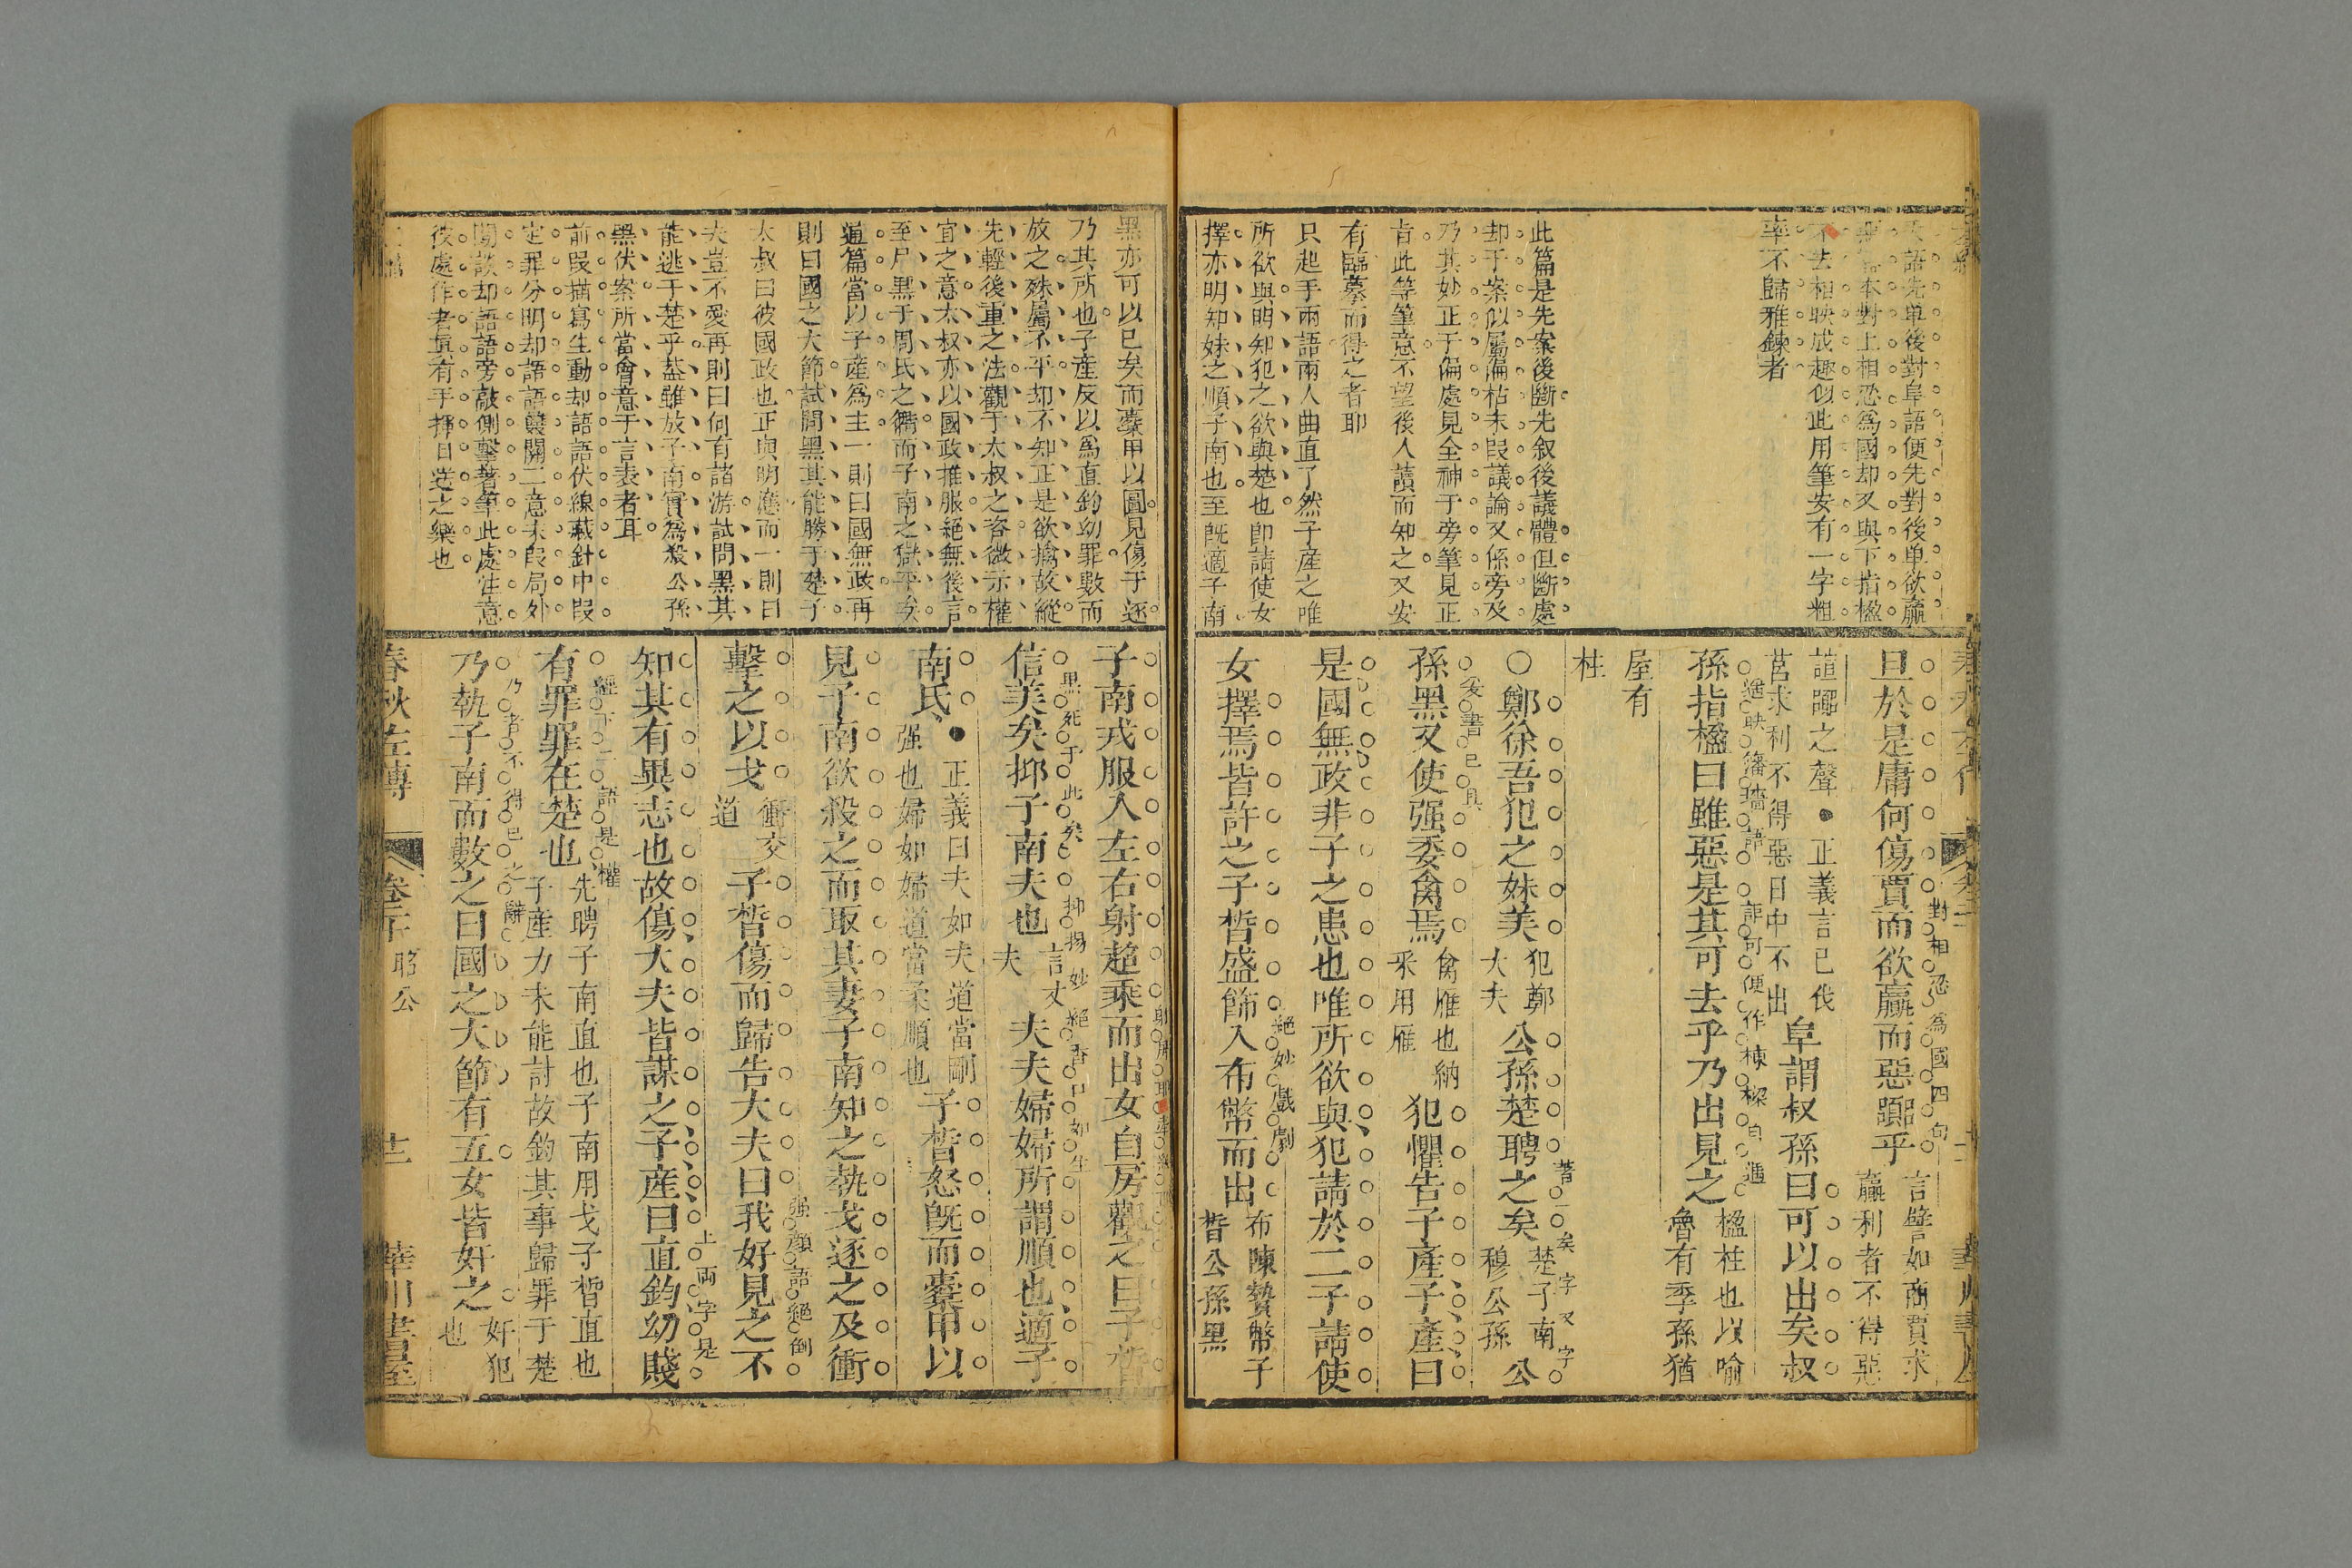 語先単後對阜語便先對後単欲贏
本對上相恐爲國却又與下指楹
不去相映成趣似此用筆安有一字粗
率不歸雅鍊者
此篇是先案後斷先叙後議體但斷處
却于案似屬偏枯末叚議論又係旁及
乃其妙正于偏處見全神于旁筆見正
旨此等筆意不望後人讀而知之又安
有臨摹而得之者耶
只起手兩語兩人曲直了然子產之唯
所欲與明知犯之欲與楚也卽請使女
擇亦明知妹之順子南也至旣適子南
旦於是庸何傷賈而欲贏而惡嚻乎
對相恐爲國四句
言譬如商賈求
贏利者不得惡
諠嚻之聲●正義言已伐
莒求利不得惡日中不出
阜謂叔孫曰可以出矣叔
孫指楹曰雖惡是其可去乎乃出見之
楹柱也以喻
魯有季孫猶
屋有
柱
○鄭徐吾犯之妹美
犯鄭
大夫
公孫楚聘之矣
著一矣字又字
楚子南
穆公孫
公
孫黑又使强委禽焉
妄書已具
禽雁也納
采用雁
犯懼告子產子產曰
是國無政非子之患也唯所欲與犯請於二子請使
女擇焉皆許之子晳盛飾入布幣而出
絕妙戲劇
布陳贄幣子
晳公孫黑
黑亦可以已矣而櫜甲以圖見傷于逐
乃其所也子產反以爲直鈞幼罪數而
放之殊屬不平却不知正是欲擒故縱
先輕後重之法觀于太叔之咨微示權
宜之意太叔亦以國政推服絕無後言
至尸黑于周氏之衢而子南之獄平矣
通篇當以子產爲主一則曰國無政再
則曰國之大節試問黑其能勝于楚子
太叔曰彼國政也正與明應而一則曰
夫豈不愛再則曰何有諸游試問黑其
能逃于楚乎葢雖放子南實爲殺公孫
黑伏案所當會意于言表者耳
前叚描寫生動却語語伏線藏針中叚
定罪分明却語語雙關二意末叚局外
閒談却語語旁敲側擊著筆此處注意
彼處作者眞有手揮目送之樂也
子南戎服入左右射超乘而出女自房觀之曰子晳
信美矣抑子南夫也
黑死于此矣
抑揚妙絕香口如生
言丈
夫
夫夫婦婦所謂順也適子
南氏
●正義曰夫如夫道當剛
强也婦如婦道當柔順也
子晳怒旣而櫜甲以
見子南欲殺之而取其妻子南知之執戈逐之及衝
擊之以戈
衝交
道
子晳傷而歸告大夫曰我好見之不
强顏語絕倒
知其有異志也故傷大夫皆謀之子產曰直鈞幼賤
上兩字是
有罪罪在楚也
經下一語是權
先聘子南直也子南用戈子晳直也
子產力未能討故鈞其事歸罪于楚
乃執子南而數之曰國之大節有五女皆奸之
乃者不得已之辭
奸犯
也
春秋左傳
卷二十 昭公
十二
華川書屋